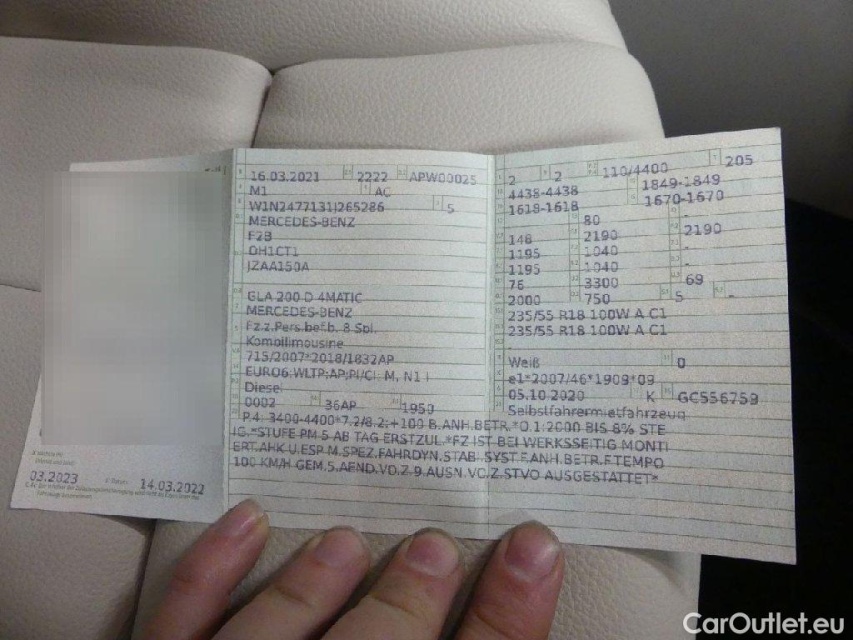 16.03.2021 2222 APW00025
M1 AC
W1N2477131J265286 5
MERCEDES-BENZ
F2B
OH1CT1
JZAA150A
GLA 200 D 4MATIC
MERCEDES-BENZ
Fz.z.Pers.bef.b. 8 Spl.
Kombilimousine
715/2007*2018/1832AP
EURO6;WLTP;AP;PI/CI: M, N1 I
Diesel
0002 36AP 1950
2 2 110/4400 205
4438-4438 1849-1849
1618-1618 1670-1670
80
148 2190 2190
1195 1040 -
1195 1040 -
76 3300 69
2000 750 5 -
235/55 R18 100W A C1
235/55 R18 100W A C1
Weiß 0
e1*2007/46*1909*09
05.10.2020 K GC556759
Selbstfahrermietfahrzeug
P.4: 3400-4400*7.2/8.2:+100 B.ANH.BETR.*0.1:2000 BIS 8% STE
IG.*STUFE PM 5 AB TAG ERSTZUL.*FZ IST BEI WERKSSEITIG MONTI
ERT.AHK U.ESP M.SPEZ.FAHRDYN.STAB.SYST.F.ANH.BETR.F.TEMPO
100 KM/H GEM.5.AEND.VO.Z.9.AUSN.VO.Z.STVO AUSGESTATTET*
03.2023 14.03.2022
CarOutlet.eu